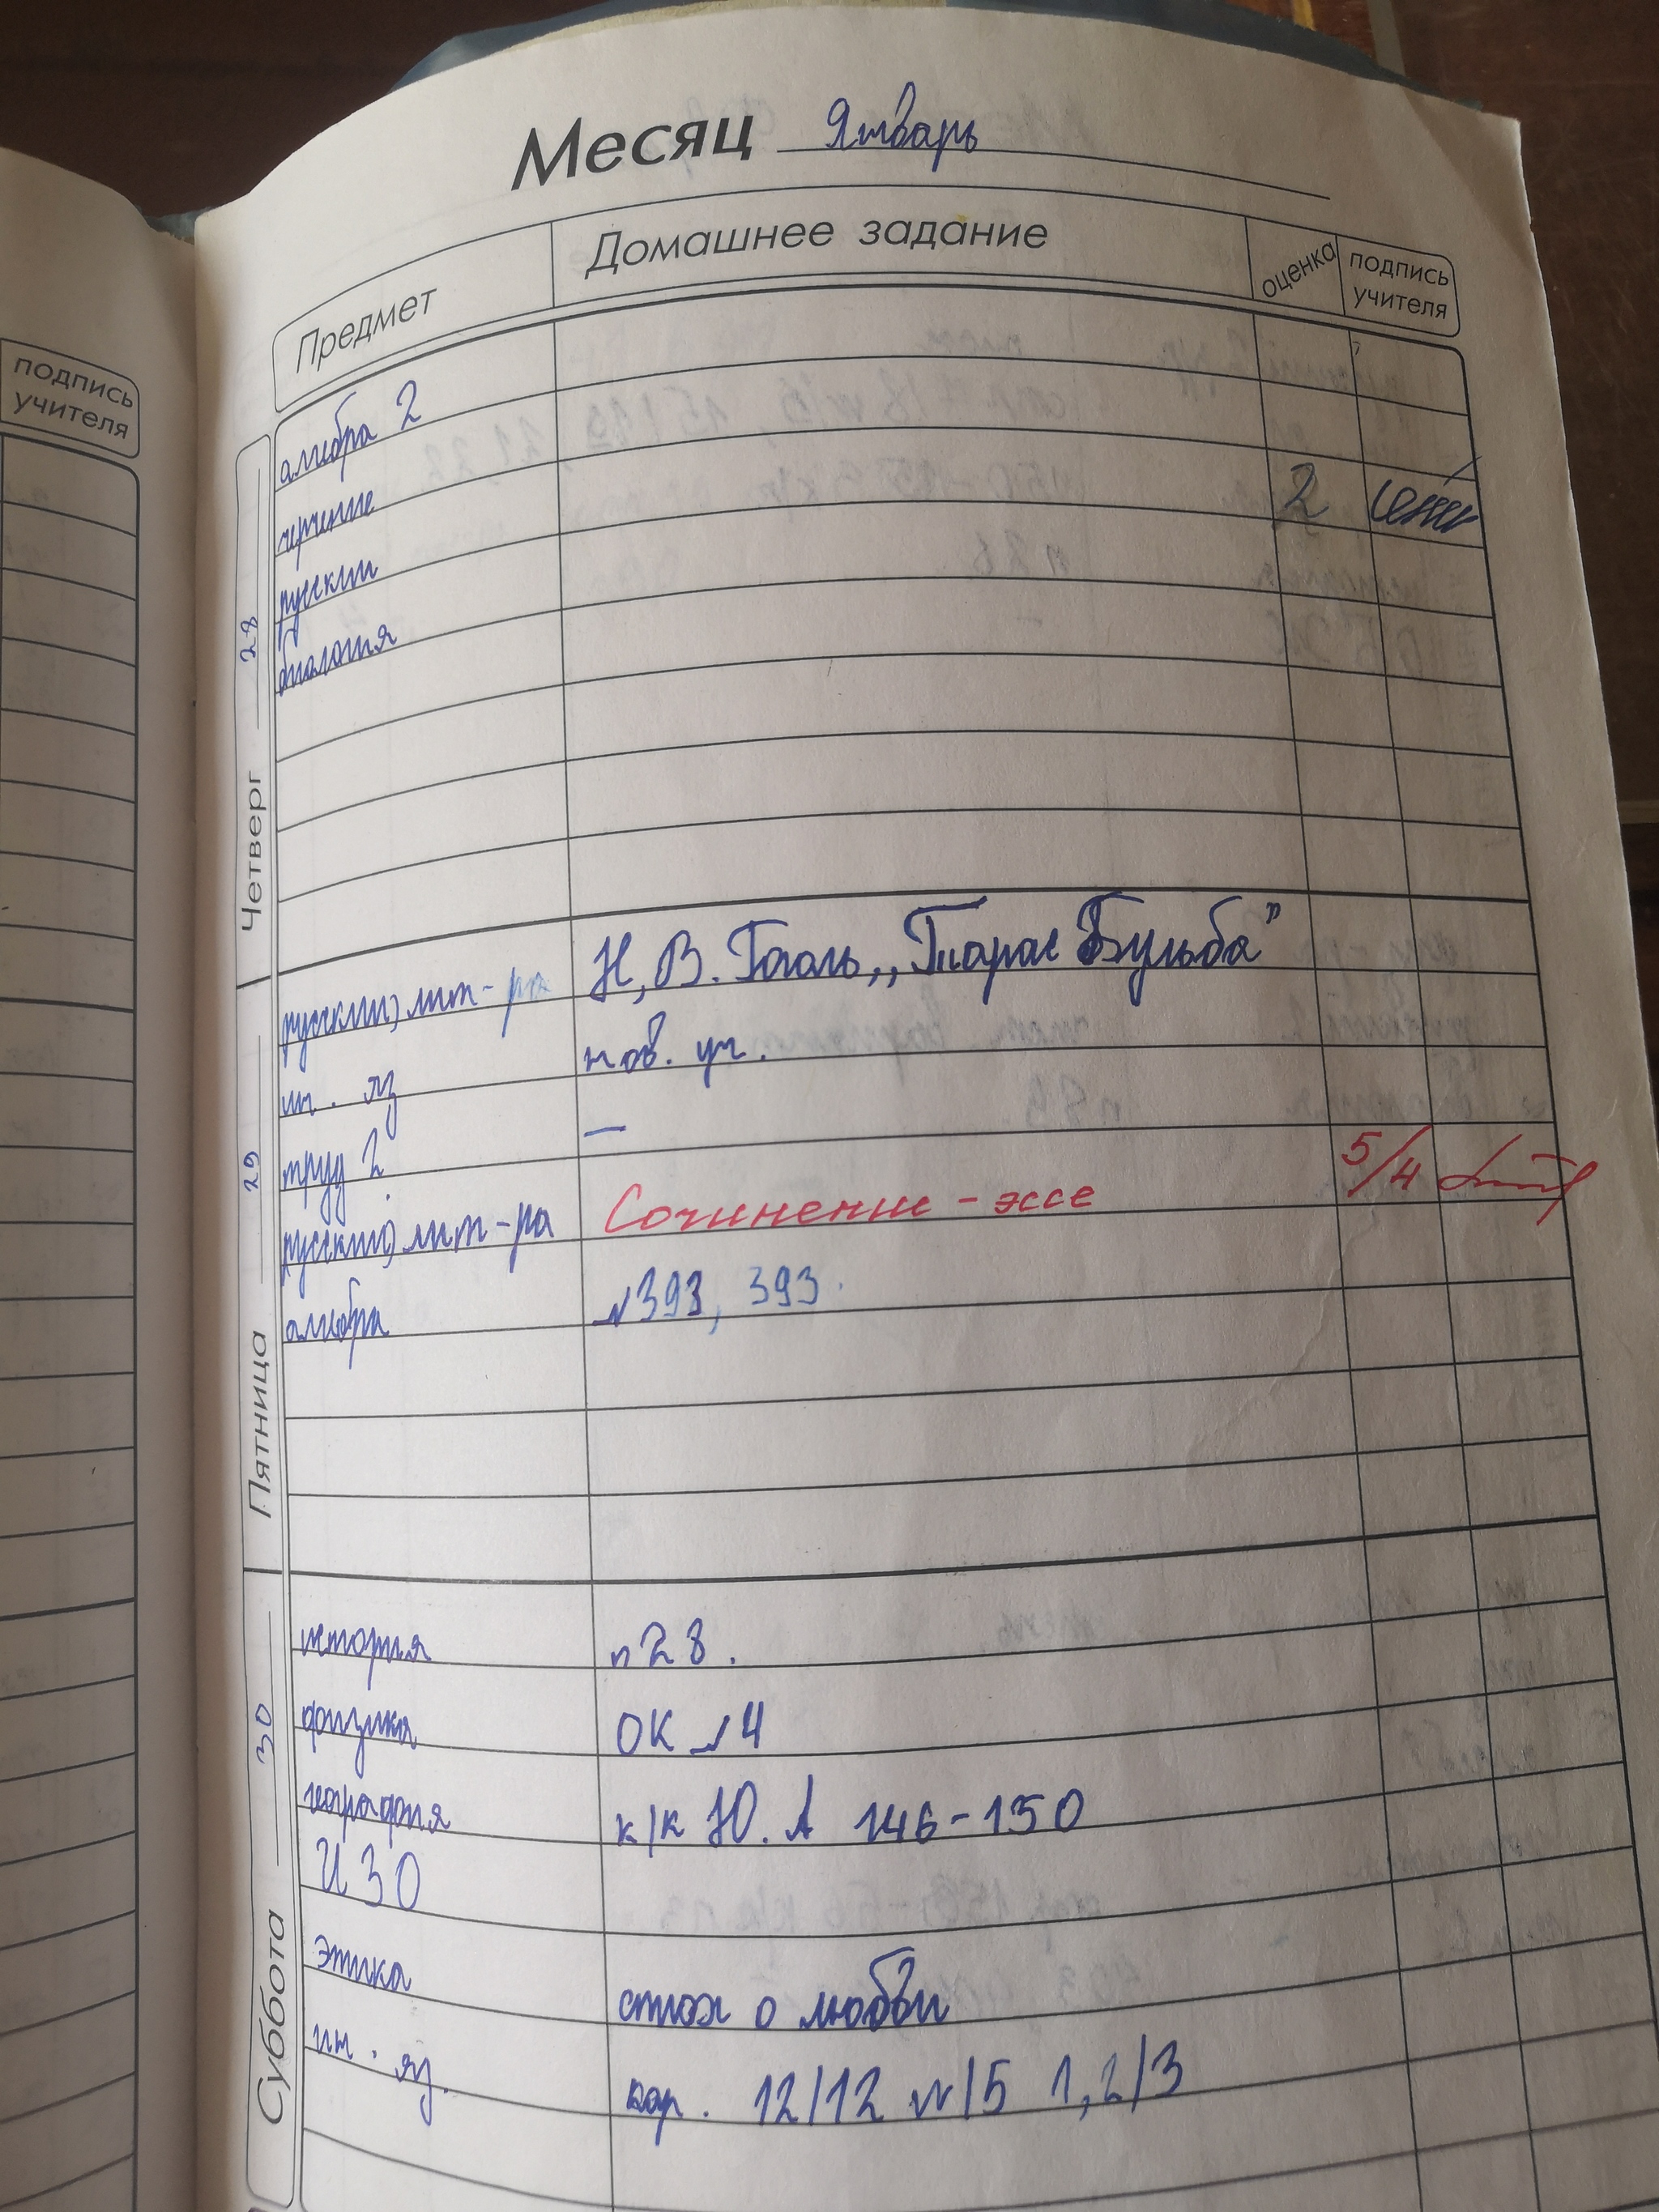 Месяц Январь
подпись учителя
Предмет Домашнее задание оценка подпись учителя
Четверг 28
алгебра 2
черчение
русский 2
биология
Пятница 29
русский) лит-ра Н, В. Гоголь „Тарас Бульба"
ин. яз нов. уч.
труд 2 —
русский) лит-ра Сочинение - эссе 5/4
алгебра №393, 393.
Суббота 30
история п28.
физика ОК №4
география к/к Ю. А 146-150
ИЗО
этика стих о любви
ин. яз. кар. 12/12 №15 1,2/3